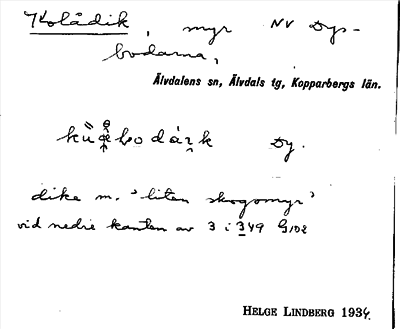 Kolådik, myr NV Dys-
bodarna,
Älvdalens sn, Älvdals tg, Kopparbergs län.
Dy.
dike m. 'liten skogsmyr'
vid nedre kanten av 3 i 349 G102
HELGE LINDBERG 1934.